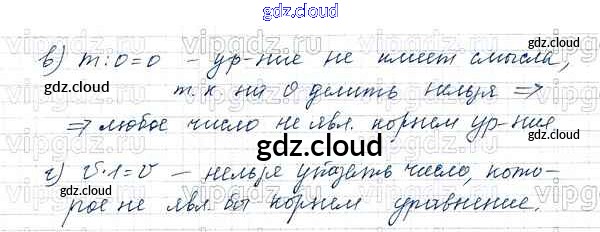 gdz.cloud
в) m:0=0 – ур-ние не имеет смысла,
gdz.cloud
т.к. на 0 делить нельзя ⇒
⇒ любое число не явл. корнем ур-ния
gdz.cloud
г) v·1=v – нельзя указать число, кото-
рое не явл. бы корнем уравнение.
gdz.cloud
gdz.cloud